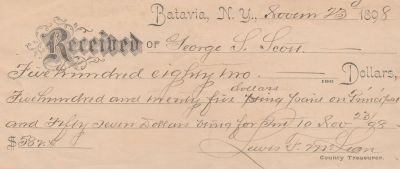 Batavia, N.Y., Novem 23d 1898
Received OF George S. Scott
Five hundred eighty two 100 Dollars,
dollars
Five hundred and twenty five being paid on Principal
and Fifty seven Dollars being for Int to Nov 23/98
$582
Lewis F. McLean
County Treasurer.